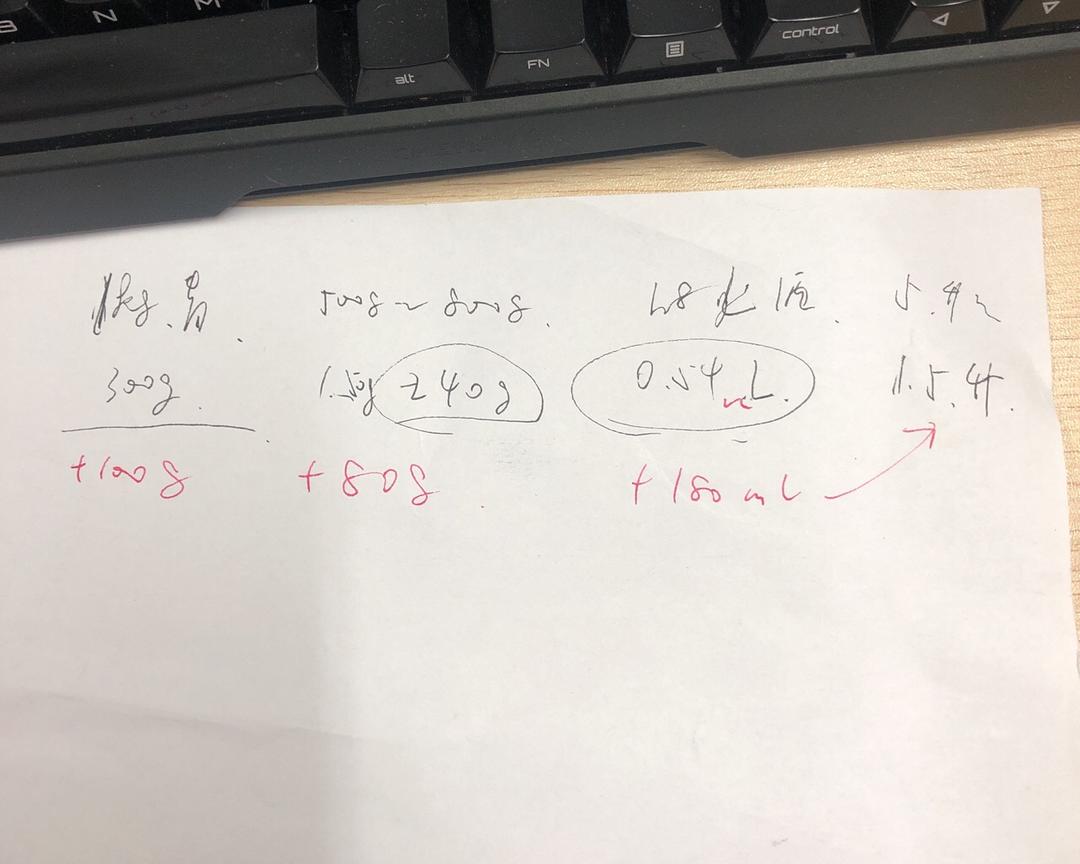 B N M
alt FN control
1kg. 500g~800g. 1.8 5.
300g. 150g 240g 0.54L. 1.5升.
+100g +80g +180mL